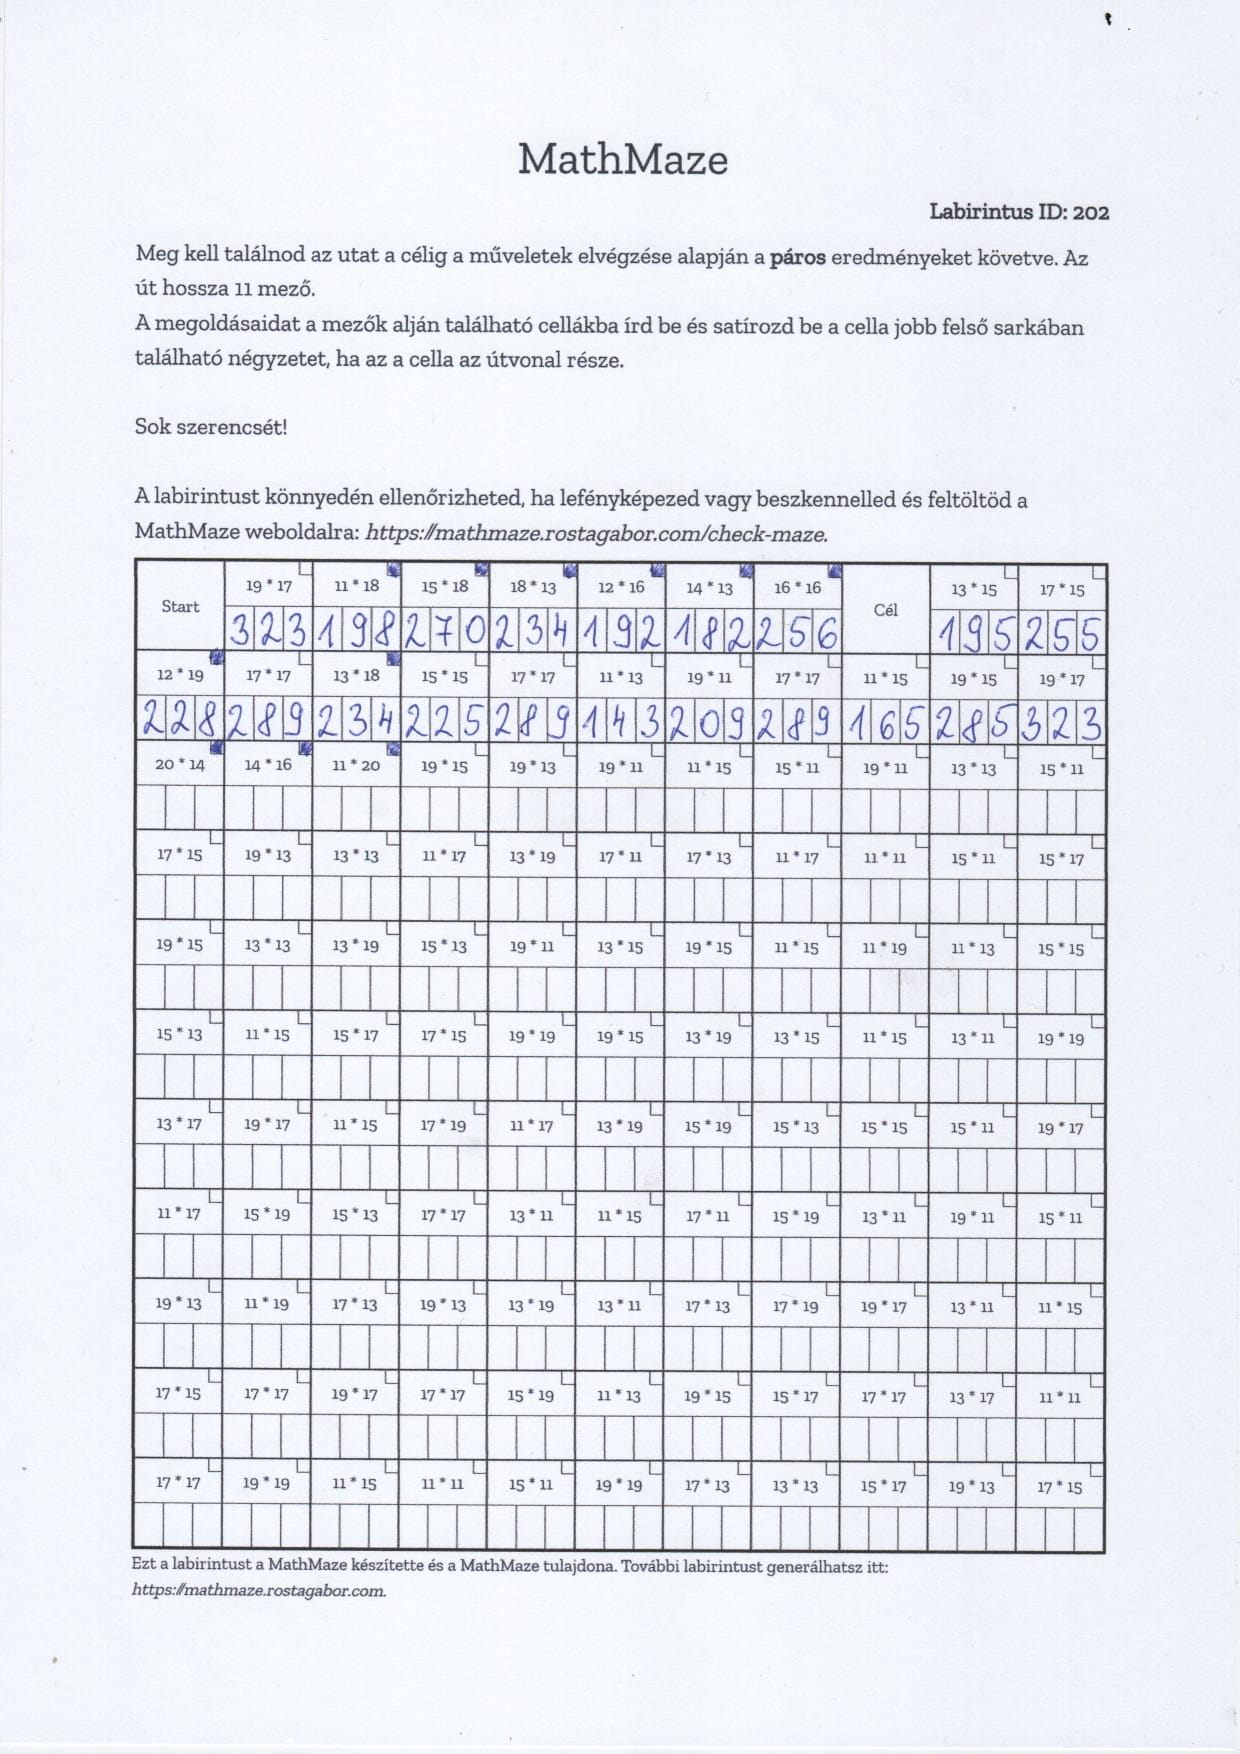 MathMaze
Labirintus ID: 202
Meg kell találnod az utat a célig a műveletek elvégzése alapján a páros eredményeket követve. Az
út hossza 11 mező.
A megoldásaidat a mezők alján található cellákba írd be és satírozd be a cella jobb felső sarkában
található négyzetet, ha az a cella az útvonal része.
Sok szerencsét!
A labirintust könnyedén ellenőrizheted, ha lefényképezed vagy beszkennelled és feltöltöd a
MathMaze weboldalra: https://mathmaze.rostagabor.com/check-maze.
Start 19 * 17 11 * 18 15 * 18 18 * 13 12 * 16 14 * 13 16 * 16 Cél 13 * 15 17 * 15
323 198 270 234 192 182 256 195 255
12 * 19 17 * 17 13 * 18 15 * 15 17 * 17 11 * 13 19 * 11 17 * 17 11 * 15 19 * 15 19 * 17
228 289 234 225 289 143 209 289 165 285 323
20 * 14 14 * 16 11 * 20 19 * 15 19 * 13 19 * 11 11 * 15 15 * 11 19 * 11 13 * 13 15 * 11
17 * 15 19 * 13 13 * 13 11 * 17 13 * 19 17 * 11 17 * 13 11 * 17 11 * 11 15 * 11 15 * 17
19 * 15 13 * 13 13 * 19 15 * 13 19 * 11 13 * 15 19 * 15 11 * 15 11 * 19 11 * 13 15 * 15
15 * 13 11 * 15 15 * 17 17 * 15 19 * 19 19 * 15 13 * 19 13 * 15 11 * 15 13 * 11 19 * 19
13 * 17 19 * 17 11 * 15 17 * 19 11 * 17 13 * 19 15 * 19 15 * 13 15 * 15 15 * 11 19 * 17
11 * 17 15 * 19 15 * 13 17 * 17 13 * 11 11 * 15 17 * 11 15 * 19 13 * 11 19 * 11 15 * 11
19 * 13 11 * 19 17 * 13 19 * 13 13 * 19 13 * 11 17 * 13 17 * 19 19 * 17 13 * 11 11 * 15
17 * 15 17 * 17 19 * 17 17 * 17 15 * 19 11 * 13 19 * 15 15 * 17 17 * 17 13 * 17 11 * 11
17 * 17 19 * 19 11 * 15 11 * 11 15 * 11 19 * 19 17 * 13 13 * 13 15 * 17 19 * 13 17 * 15
Ezt a labirintust a MathMaze készítette és a MathMaze tulajdona. További labirintust generálhatsz itt:
https://mathmaze.rostagabor.com.